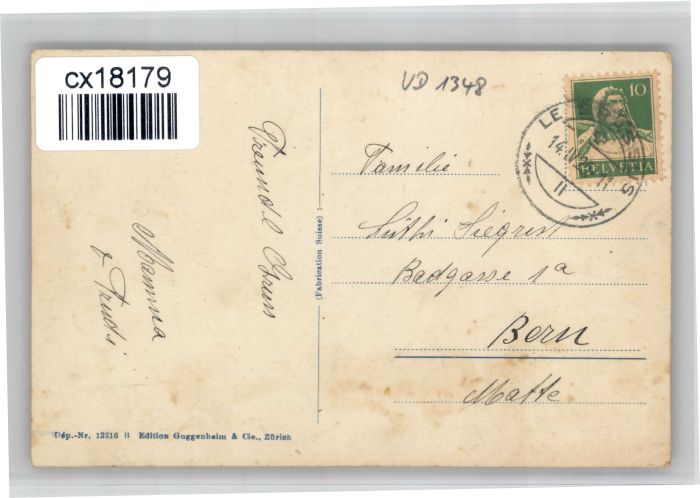 cx18179
VD 1348
10
HELVETIA
LE
14
II
Familie
Lüthi Siegrist
Badgasse 1a
Bern
Matte
Freundl Gruss
Mamma
& Trudi
(Fabrication Suisse)
Dép.-Nr. 12216 B Edition Guggenheim & Cie., Zürich